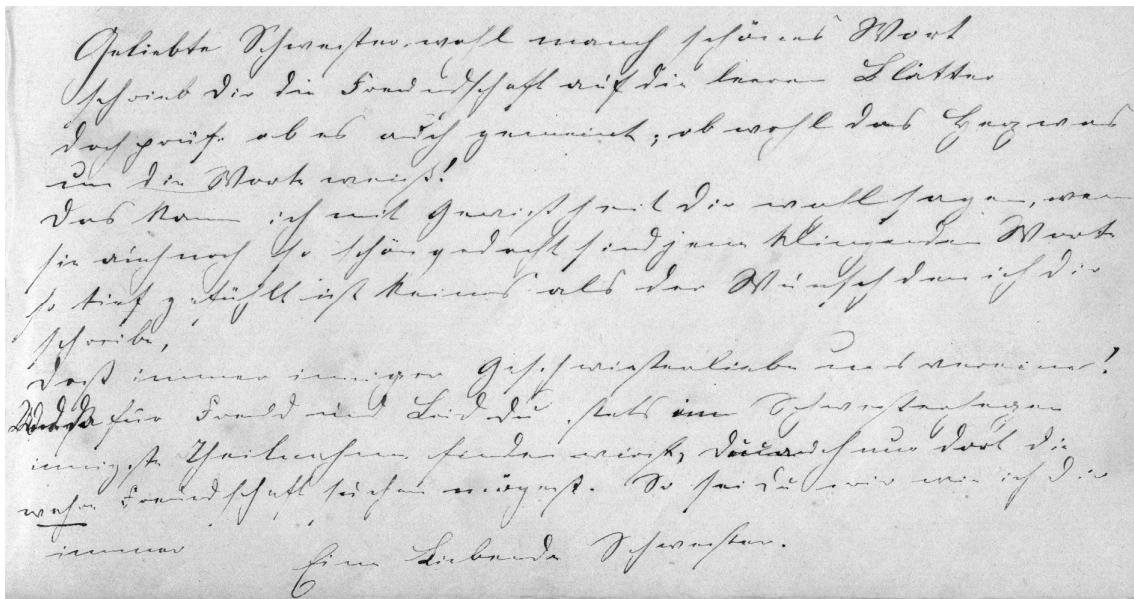 Geliebte Schwester, wohl manch schönes Wort
schrieb Dir die Freundschaft auf die leeren Blätter
doch prüfe ob es auch gemeint, ob wohl das Herz was
um die Worte weiß!
Das kann ich mit Gewißheit Dir wohl sagen, wenn
sie auch noch so schön gedacht sind jene klingenden Worte
so tief gefühlt ist keins als der Wunsch den ich Dir
schreibe,
Daß immer inniger Geschwisterliebe uns vereine!
für Freud und Leid Du stets im Schwesterherzen
innigste Theilnahme finden wirst, Du auch nur dort die
wahre Freundschaft suchen mögest. So sei Du mir wie ich Dir
immer
Eine Liebende Schwester.